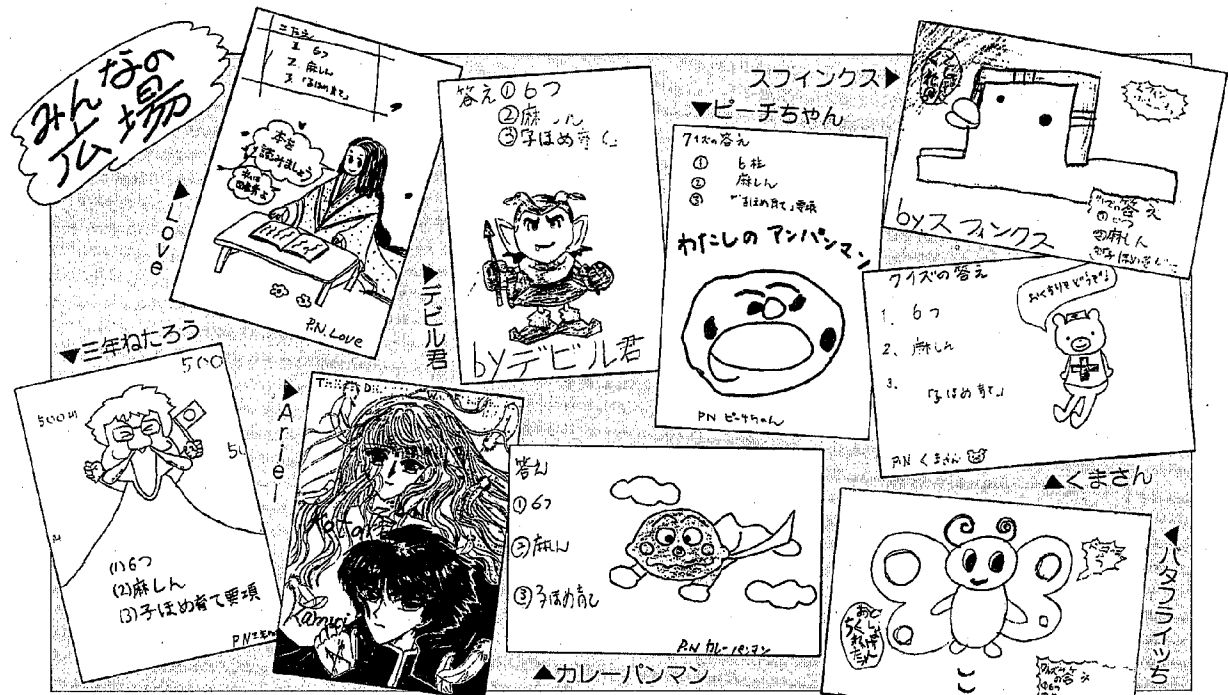 みんなの
広場
▶Love
1. 6つ
2. 麻しん
3. 「子ほめ育て」
本を
読みましょう
P.N. Love
▶デビル君
答え ① 6つ
② 麻しん
③ 子ほめ育て
byデビル君
▼ピーチちゃん
クイズの答え
①
② 麻しん
③ 「子ほめ育て」要項
わたしの アンパンマン
PN ピーチちゃん
スフィンクス▶
クイズの答え
②麻しん
by.スフィンクス
クイズの答え
1. 6つ
2. 麻しん
3. 「子ほめ育て」
おくすりをどうぞ
P.N くまさん
▲くまさん
▼三年ねたろう
500
500m
(1) 6つ
(2) 麻しん
(3) 子ほめ育て要項
▶Ariel
Kamui
答え
① 6つ
② 麻しん
③ 子ほめ育て
P.N カレーパンマン
▲カレーパンマン
▼バタフライっち